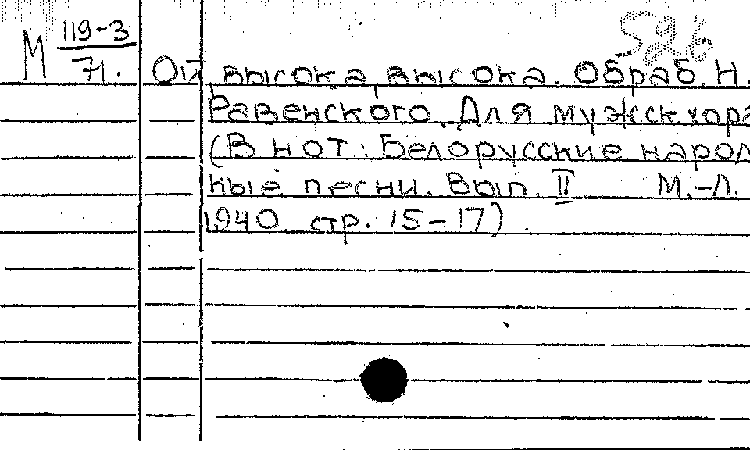 М 119-3
71.
526
Ой высока, высока. Обраб. Н.
Равенского. Для мужск. хора
(В нот.: Белорусские народ
ные песни. Вып. II М.-Л.
1940 стр. 15-17)